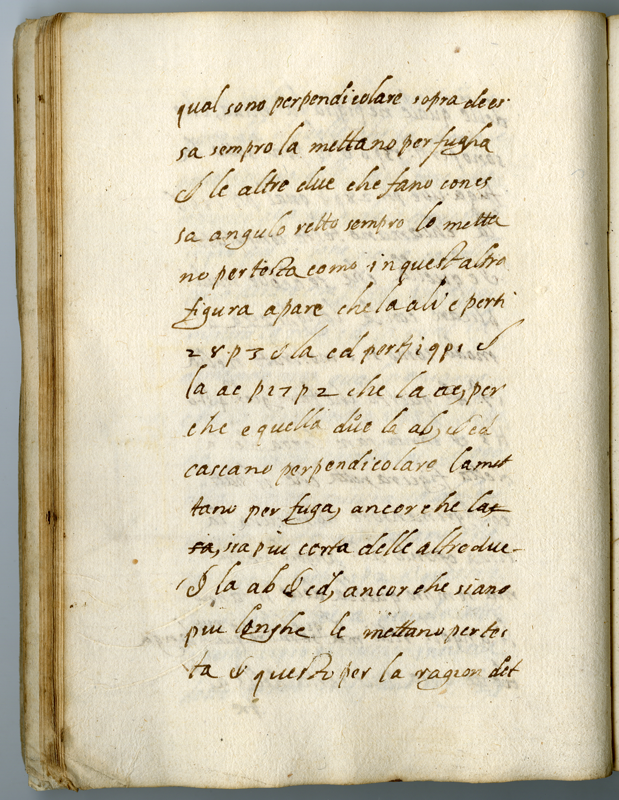 qual sono perpendicolare sopra de es
sa sempro la mettano per fugha
& le altre due che fano con es
sa angulo retto sempro lo metta
no per testa como in quest altra
figura apare che la ab e perti
28 · p 3 & la cd perti 19 p 1 &
la ac p 17 p 2 che la ac, per
che e quella důe la ab, & cd
cascano perpendicolare la met
tano per fuga, ancor che la
sia piu corta delle altro due -
& la ab & cd, ancor che siano
piu longhe le mettano per tes
ta & questo per la ragion det